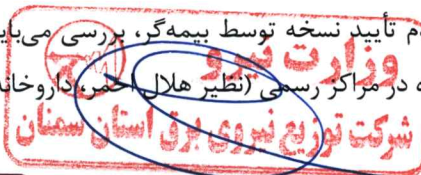 م تأیید نسخه توسط بیمه‌گر، بررسی می‌بای
وزارت نیرو
ه در مراکز رسمی (نظیر هلال احمر، داروخان
شرکت توزیع نیروی برق استان سمنان